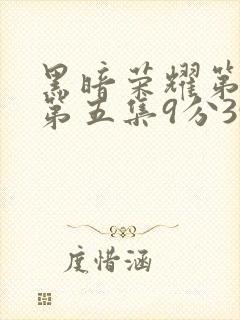 黑暗荣耀第
第五集9分3
度惜涵